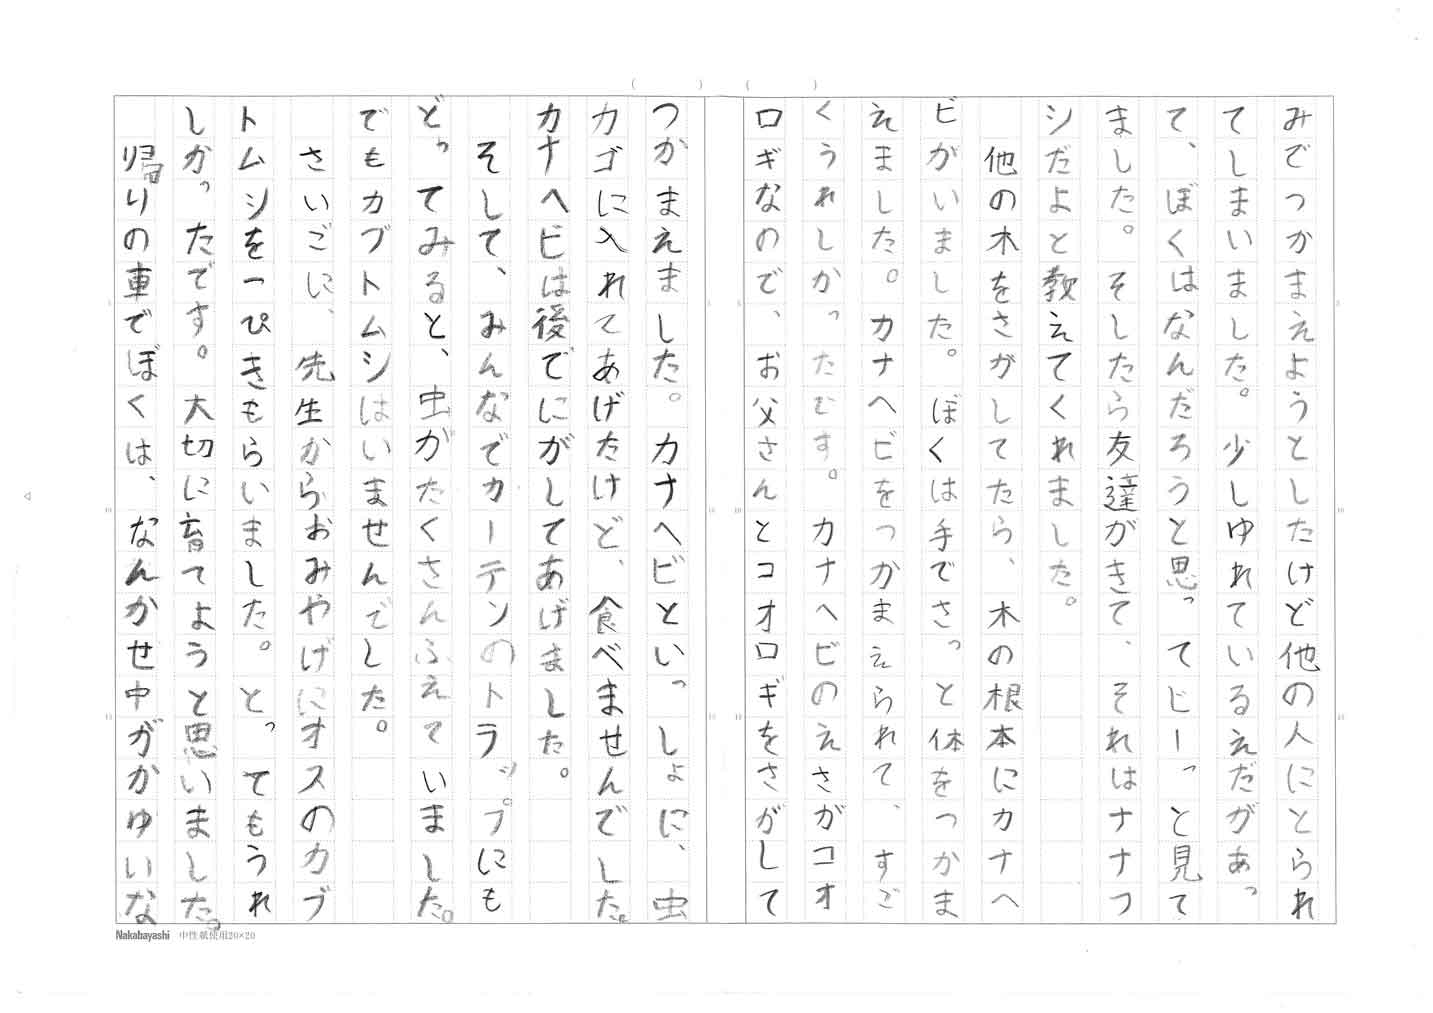 みでつかまえようとしたけど他の人にとられ
てしまいました。少しゆれているえだがあっ
て、ぼくはなんだろうと思ってじーっと見て
ました。そしたら友達がきて、それはナナフ
シだよと教えてくれました。
他の木をさがしてたら、木の根本にカナヘ
ビがいました。ぼくは手でさっと体をつかま
えました。カナヘビをつかまえられて、すご
くうれしかったむす。カナヘビのえさがコオ
ロギなので、お父さんとコオロギをさがして
つかまえました。カナヘビといっしょに、虫
カゴに入れてあげたけど、食べませんでした。
カナヘビは後でにがしてあげました。
そして、みんなでカーテンのトラップにも
どってみると、虫がたくさんふえていました。
でもカブトムシはいませんでした。
さいごに、先生からおみやげにオスのカブ
トムシを一ぴきもらいました。とってもうれ
しかったです。大切に育てようと思いました。
帰りの車でぼくは、なんかせ中がかゆいな
Nakabayashi 中性紙使用20×20